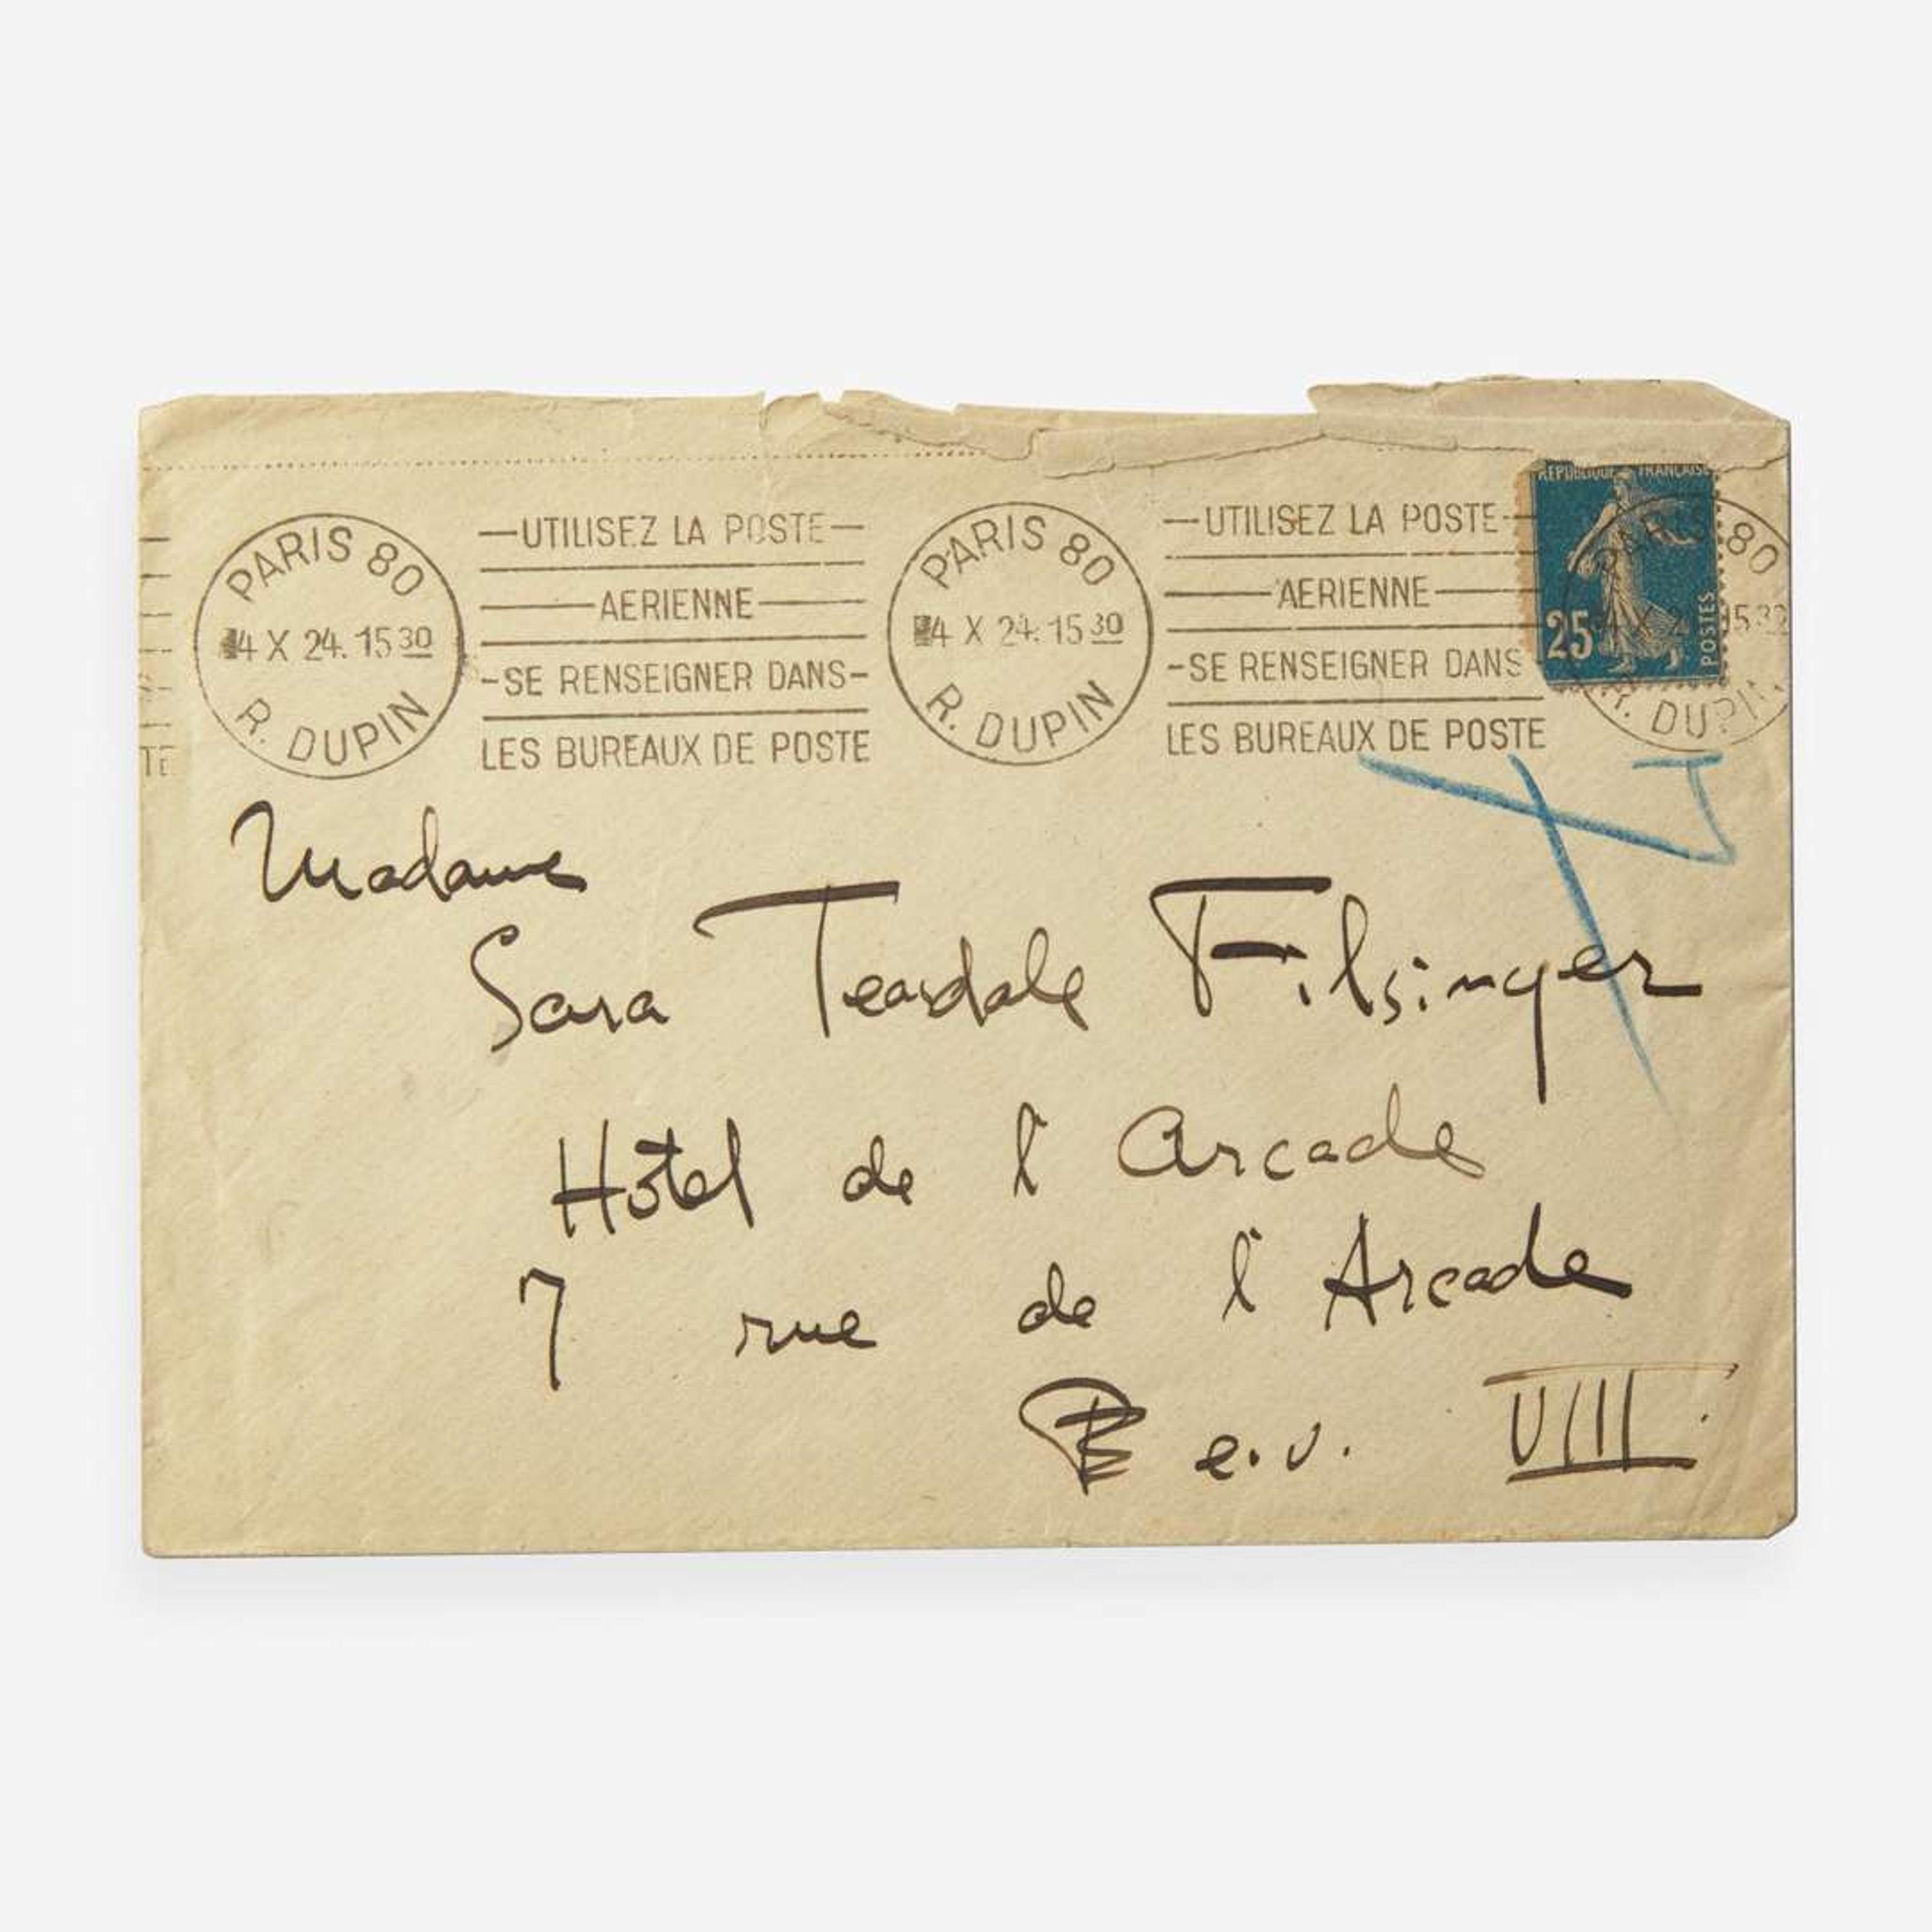 RÉPUBLIQUE FRANÇAISE
25 POSTES
PARIS 80
4 X 24. 15 30
R. DUPIN
UTILISEZ LA POSTE
AERIENNE
SE RENSEIGNER DANS
LES BUREAUX DE POSTE
PARIS 80
4 X 24. 15 30
R. DUPIN
UTILISEZ LA POSTE
AERIENNE
SE RENSEIGNER DANS
LES BUREAUX DE POSTE
PARIS 80
R. DUPIN
TE
Madame
Sara Teasdale Filsinger
Hôtel de l'Arcade
7 rue de l'Arcade
e.v. VIII